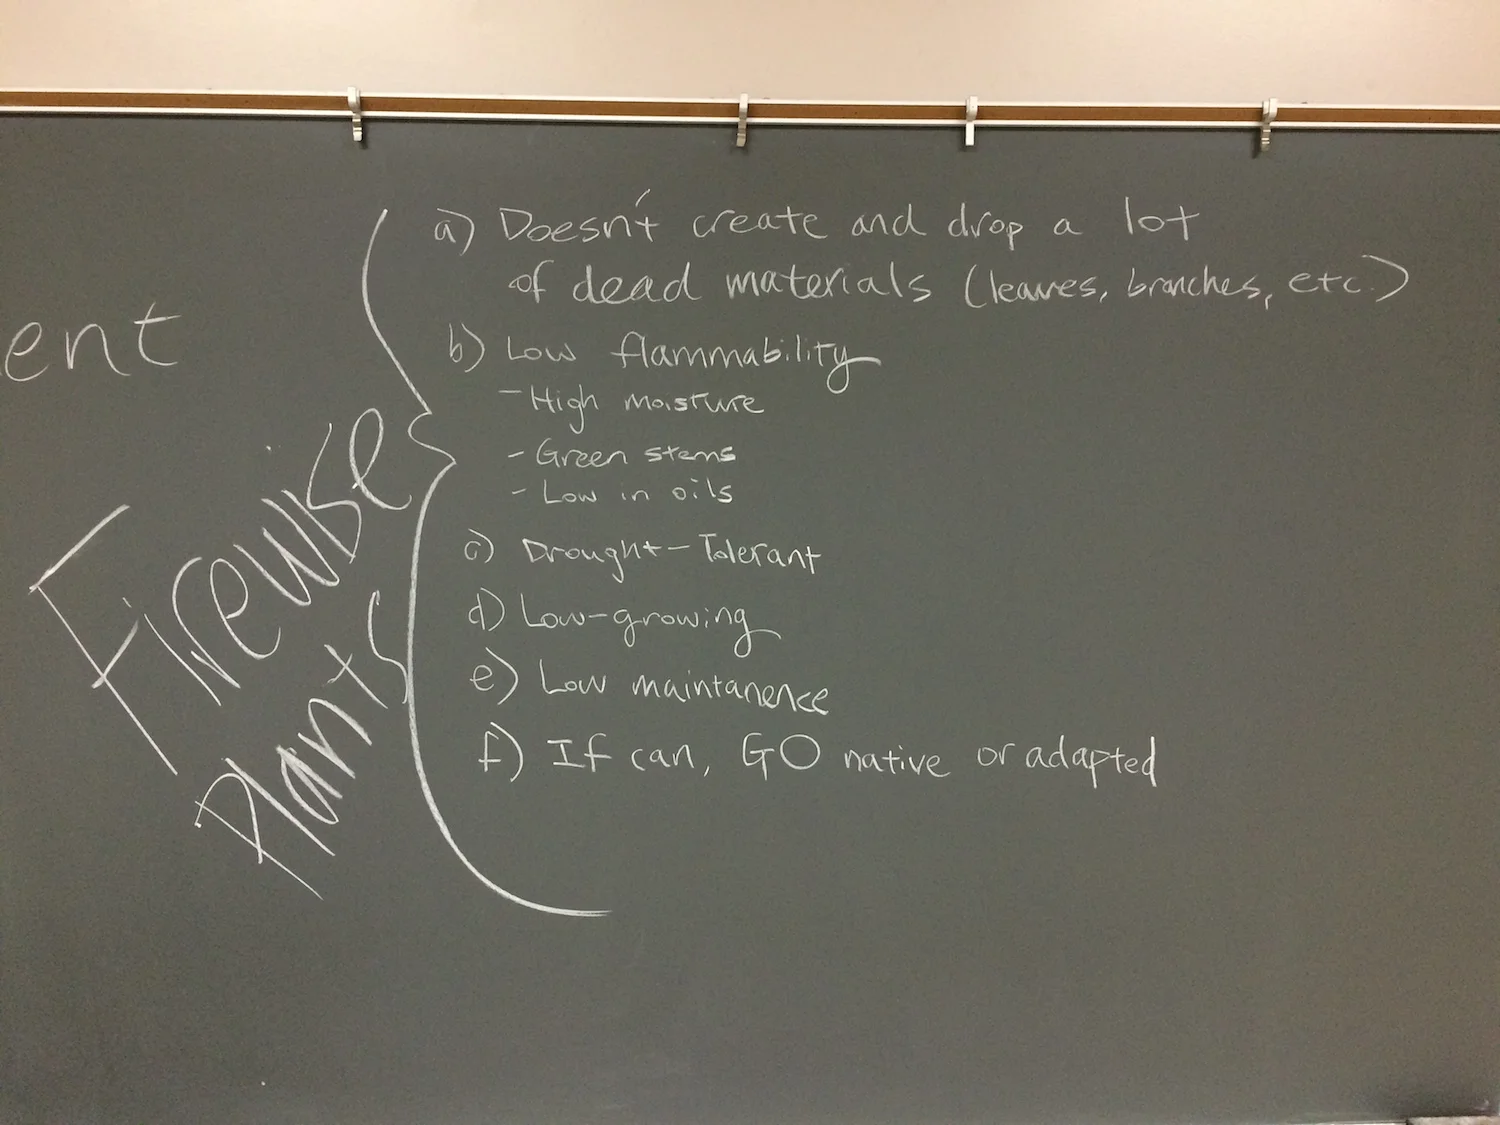 ent
Firewise
Plants
a) Doesn't create and drop a lot
of dead materials (leaves, branches, etc.)
b) Low flammability
- High moisture
- Green stems
- Low in oils
c) Drought-Tolerant
d) Low-growing
e) Low maintanence
f) If can, GO native or adapted